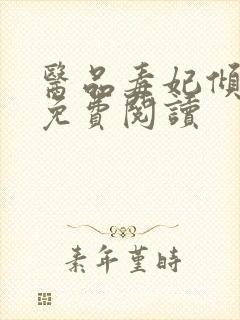 醫品毒妃傾
免費閱讀
素年堇時